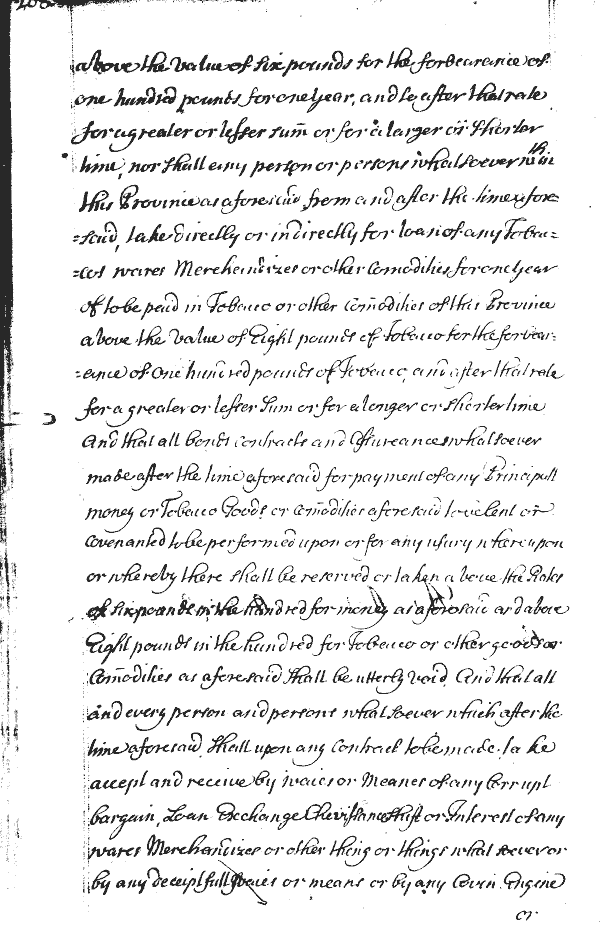 above the value of six pounds for the forbearance of
one hundred pounds for one year, and so after that rate
for a greater or lesser sum̄ or for a larger or shorter
time, nor shall any person or persons whatsoever wthin
this Province as aforesaid, from and after the time afore=
=said, take directly or indirectly for loan of any Tobac=
=co wares Merchandizes or other Com̄odities for one year
of to be paid in Tobacco or other Com̄odities of this Province
above the value of Eight pounds of Tobacco for the forbear=
=ance of one hundred pounds of Tobacco, and after that rate
for a greater or lesser Sum or for a longer or shorter time
And that all bonds contracts and Assureances whatsoever
made after the time aforesaid for payment of any Principall
money or Tobacco Goods or Com̄odities aforesaid to be lent or
Covenanted to be performed upon or for any usury whereupon
or whereby there shall be reserved or taken above the Rates
of six pounds in the hundred for money as aforesaid and above
Eight pounds in the hundred for Tobacco or other goods or
Com̄odities as aforesaid shall be utterly void And that all
and every person and persons whatsoever which after the
time aforesaid shall upon any Contract to be made take
accept and receive by waies or Means of any Corrupt
bargain, Loan Exchange Chevissance shift or Interest of any
wares Merchandizes or other thing or things whatsoever or
by any deceiptfull Waies or means or by any Covin Engine
or